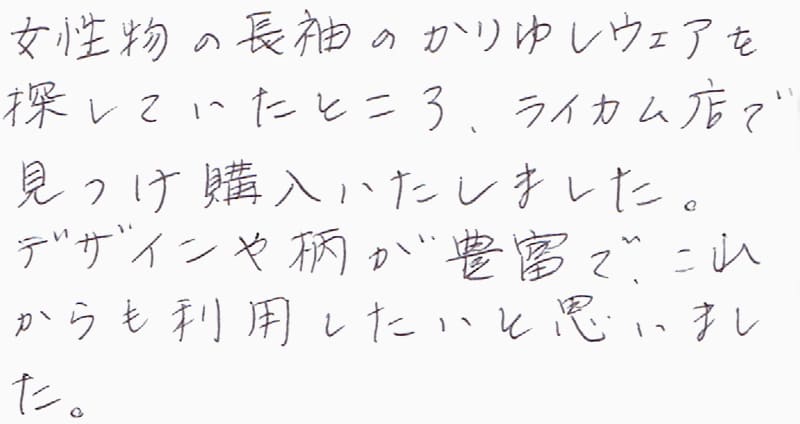 女性物の長袖のかりゆしウェアを
探していたところ、ライカム店で
見つけ購入いたしました。
デザインや柄が豊富で、これ
からも利用したいと思いまし
た。